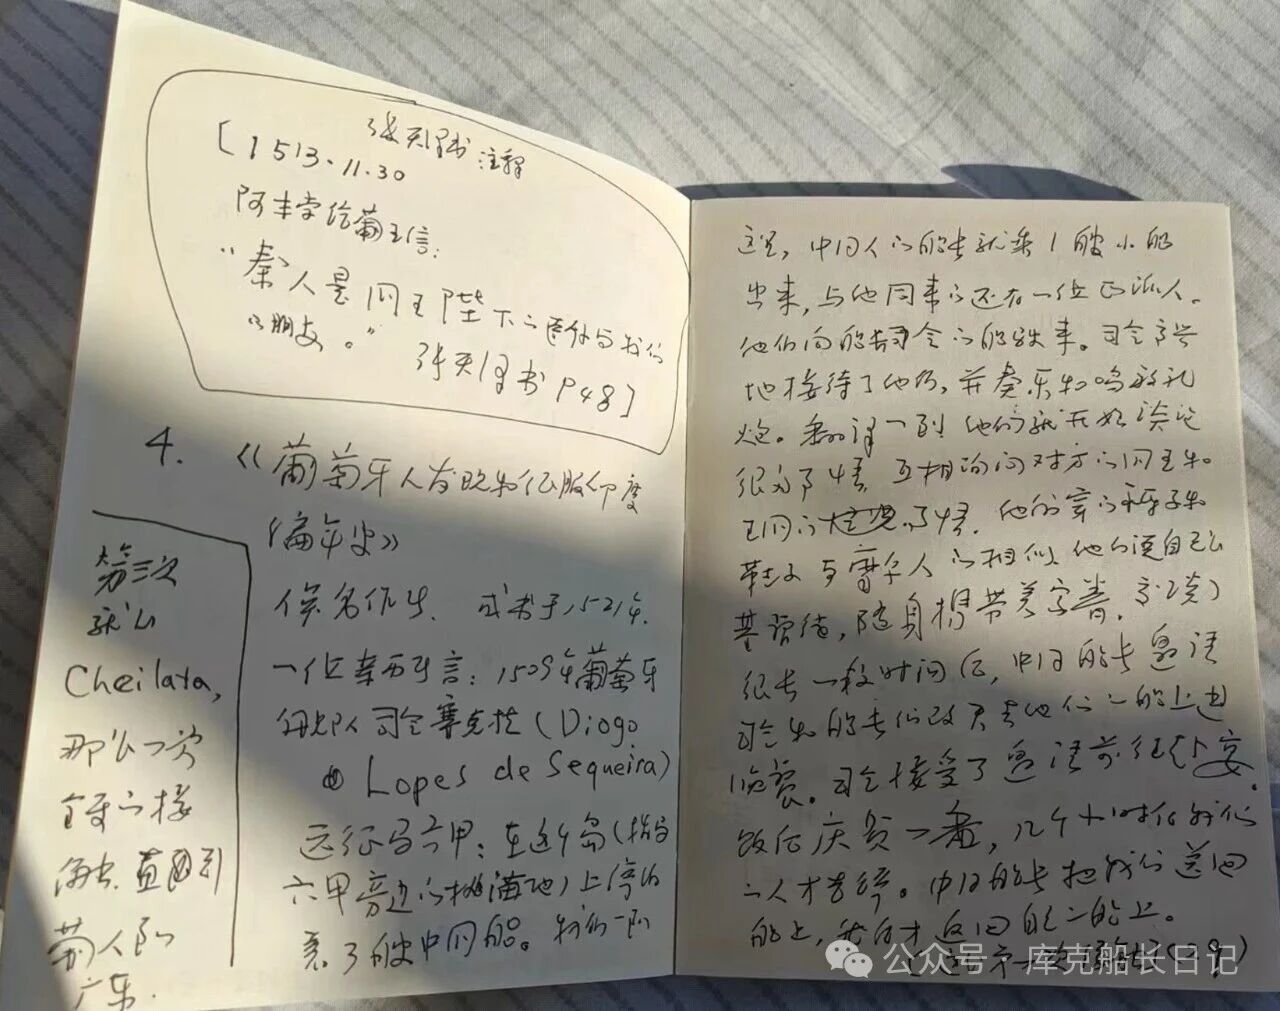 张天泽书 注释
[1513.11.30
阿丰索给葡王信：
"秦人是国王陛下的 与我们
的朋友。"
张天泽书 P48]
4. 《葡萄牙人发现和征服印度
编年史》
佚名作者. 成书于1521年.
一位亲历者言：1509年葡萄牙
舰队司令塞克拉（Diogo
Lopes de Sequeira)
远征马六甲：在这个岛（指马
六甲旁边的 满地）上停泊
着了艘中国船。我们一到
第三次
Cheilata,
那么一次
的接
触 直到
葡人到
广东.
这里，中国人的船长就乘1艘小船
出来，与他同来的还有一位 人。
他们向船司令的船驶来。司令高兴
地接待了他们，并奏乐和鸣放礼
炮。翻译一到 他们就开始谈论
很多事情 互相询问对方的国王和
王国的 事情. 他们穿的 子和
鞋子与摩尔人的相似 他们说自己是
基督徒，随身携带美 . 谈了
很长一段时间后，中国船长邀请
司令和船长们改天去他们的船上进
晚餐。司令接受了邀请前往赴宴
饭后庆贺一番，几个小时后我们
的人才告辞。中国船长把我们送回
船上，然后才返回自己的船上。
公众号 · 库克船长日记